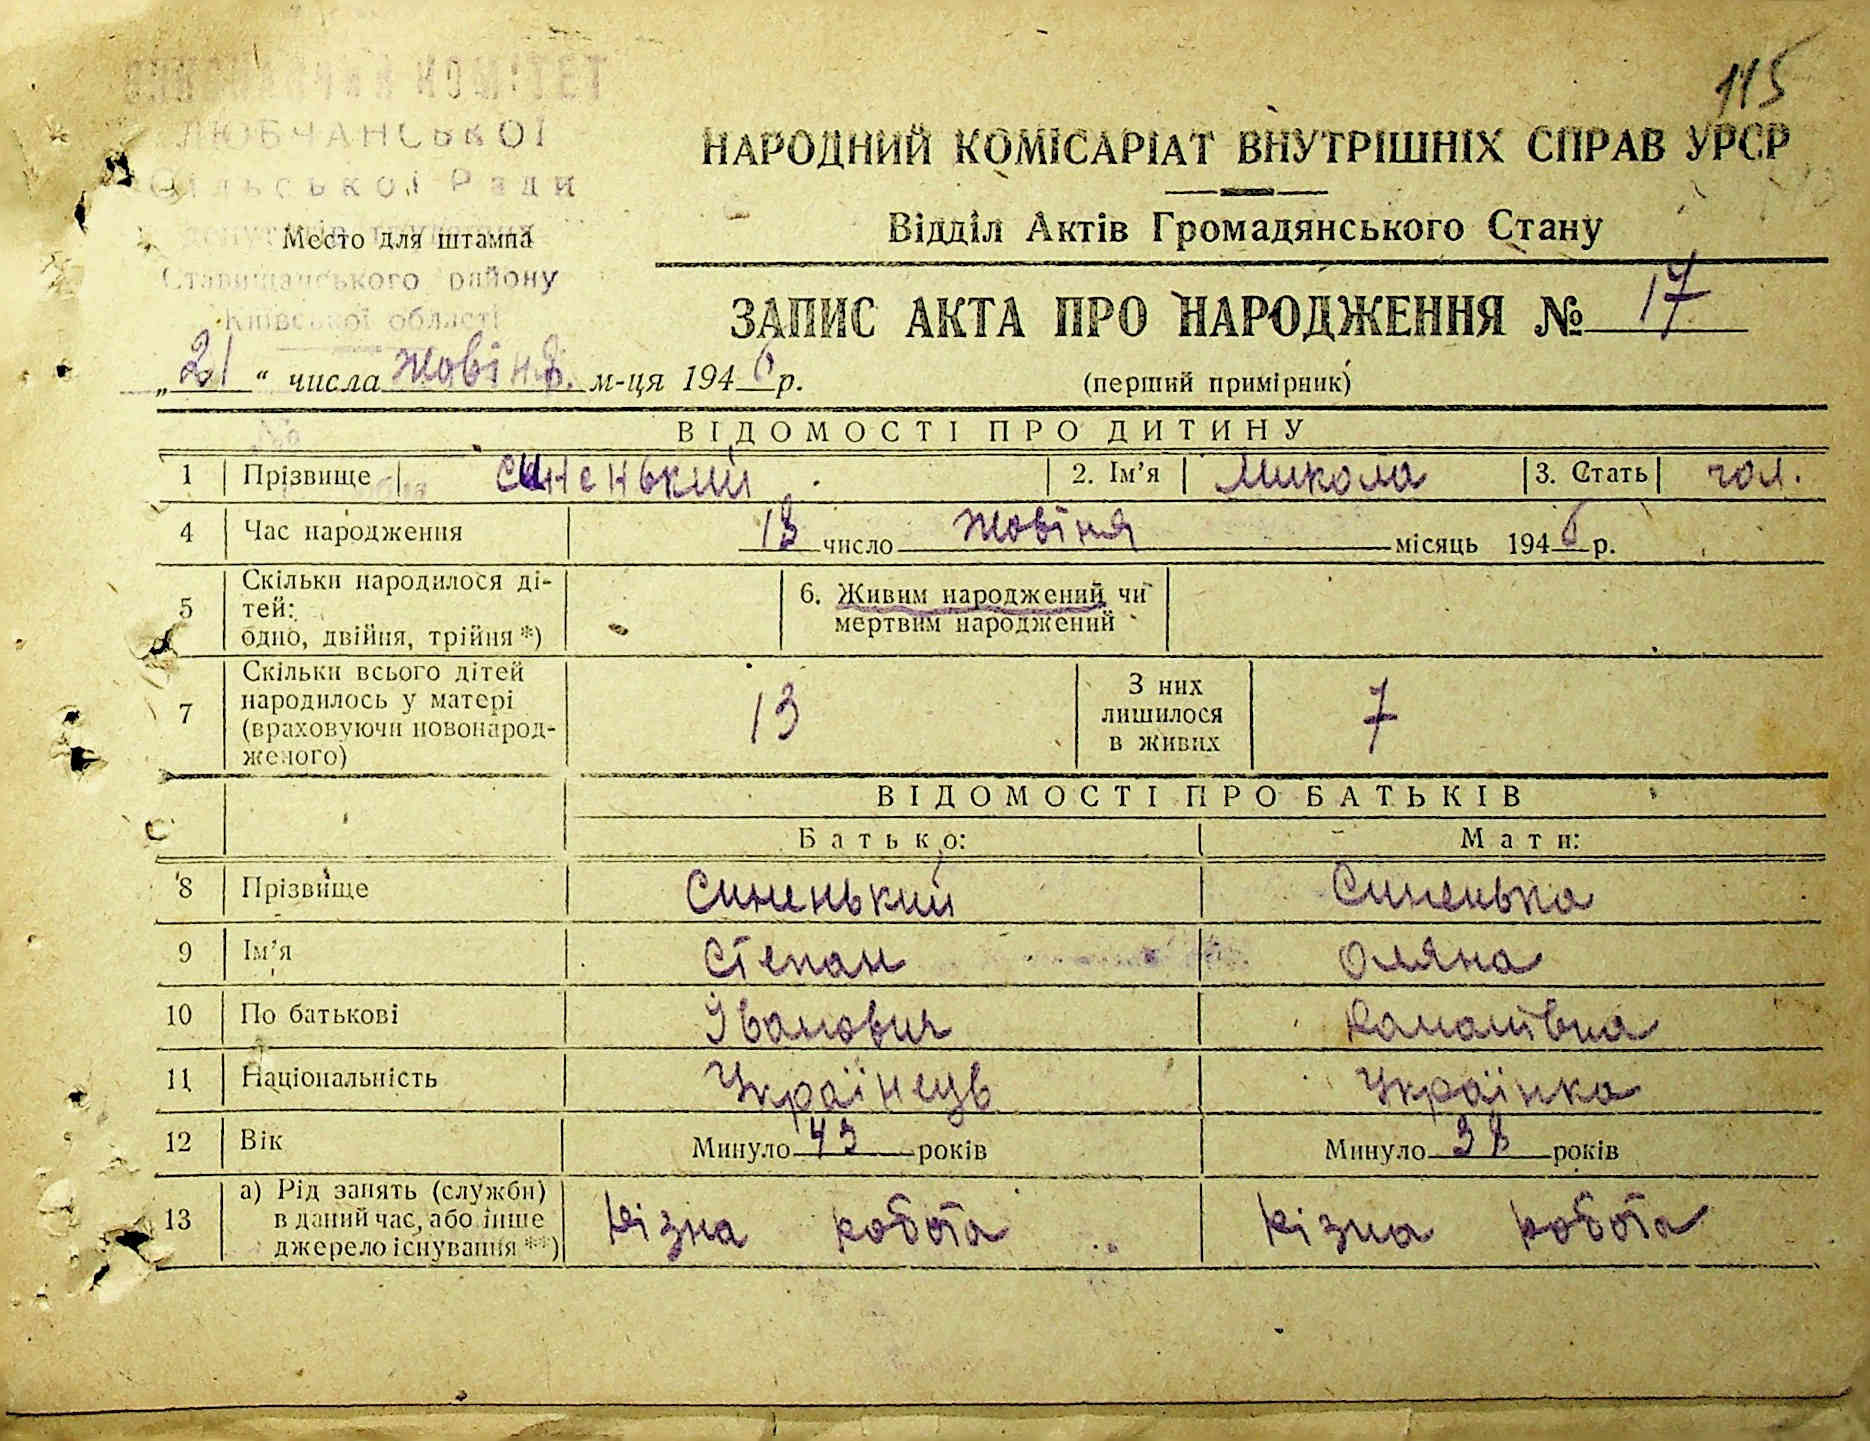 115
КОМІТЕТ
ЛЮБЧАНСЬКОЇ
Сільської Ради
Место для штампа
Ставищанського району
Київської області
НАРОДНИЙ КОМІСАРІАТ ВНУТРІШНІХ СПРАВ УРСР
Відділ Актів Громадянського Стану
ЗАПИС АКТА ПРО НАРОДЖЕННЯ № 17
„21“ числа жовтня м-ця 1946 р. (перший примірник)
ВІДОМОСТІ ПРО ДИТИНУ
1 Прізвище Синенький 2. Ім’я Микола 3. Стать чол.
4 Час народження 13 число жовтня місяць 1946 р.
5 Скільки народилося ді-
тей:
одно, двійня, трійня *)
6. Живим народжений чи
мертвим народжений
7 Скільки всього дітей
народилось у матері
(враховуючи новонарод-
женого)
13
З них
лишилося
в живих
7
ВІДОМОСТІ ПРО БАТЬКІВ
Батько: Мати:
8 Прізвище Синенький Синенька
9 Ім’я Степан Оляна
10 По батькові Іванович
11 Національність Українець Українка
12 Вік Минуло 43 років Минуло 38 років
13 а) Рід занять (служби)
в даний час, або інше
джерело існування **)
різна робота різна робота